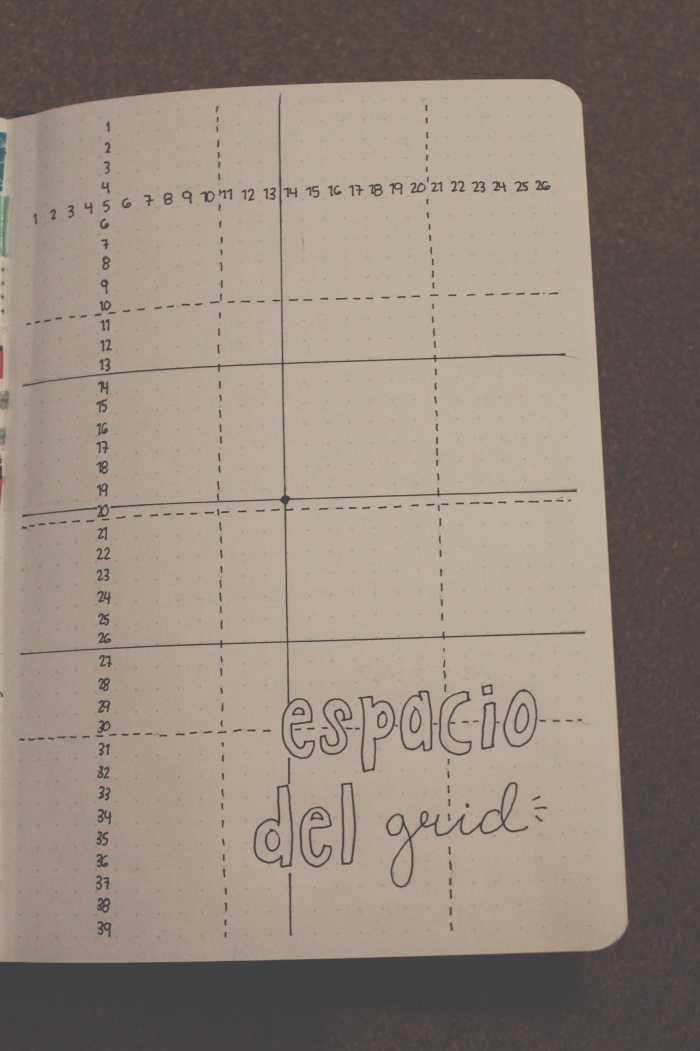 1
2
3
4
1 2 3 4 5 6 7 8 9 10 11 12 13 14 15 16 17 18 19 20 21 22 23 24 25 26
6
7
8
9
10
11
12
13
14
15
16
17
18
19
20
21
22
23
24
25
26
27
28
29
30
31
32
33
34
35
36
37
38
39
espacio
del grid